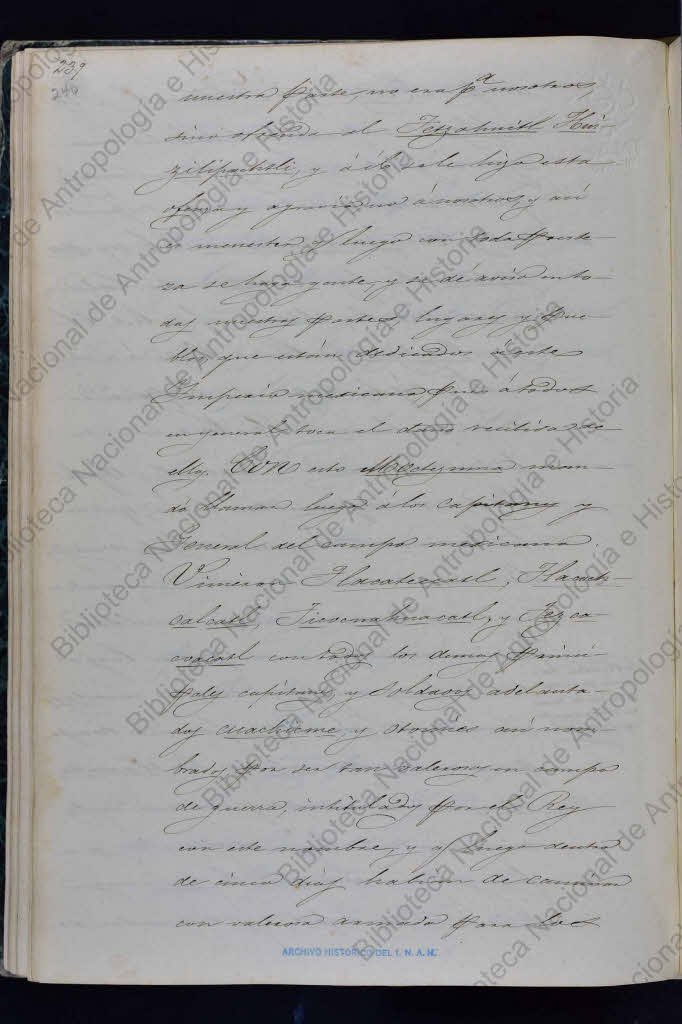 239
240
nuestra parte, no era pª nosotros,
sino ofrenda al Tetzahuitl Huit-
zilipochtli, y á él se le hizo esta
ofensa y agraviaron á nosotros, y asi
es menester q luego con toda preste-
za se haga gente, y se dé aviso en to-
das nuestras partes, lugares y pue-
blos que están dedicados á este
Imperio mexicano pues á todos
en general toca el daño recibido de
ellos. CON esto Moctezuma man-
dó llamar luego á los capitanes y
General del campo mexicano
Vinieron Tlacateccatl, Tlacoch-
calcatl, Ticocnahuacatl, y Tezca-
coacatl con todos los demas princi-
pales capitanes y soldados adelanta-
dos cuachicme, y otomies asi nom-
brados por ser tan valerosos en campo
de guerra, intitulados por el Rey
con este nombre, y q luego dentro
de cinco dias habian de caminar
con valerosa armada para los
ARCHIVO HISTORICO DEL I. N. A. H.
Biblioteca Nacional de Antropología e Historia